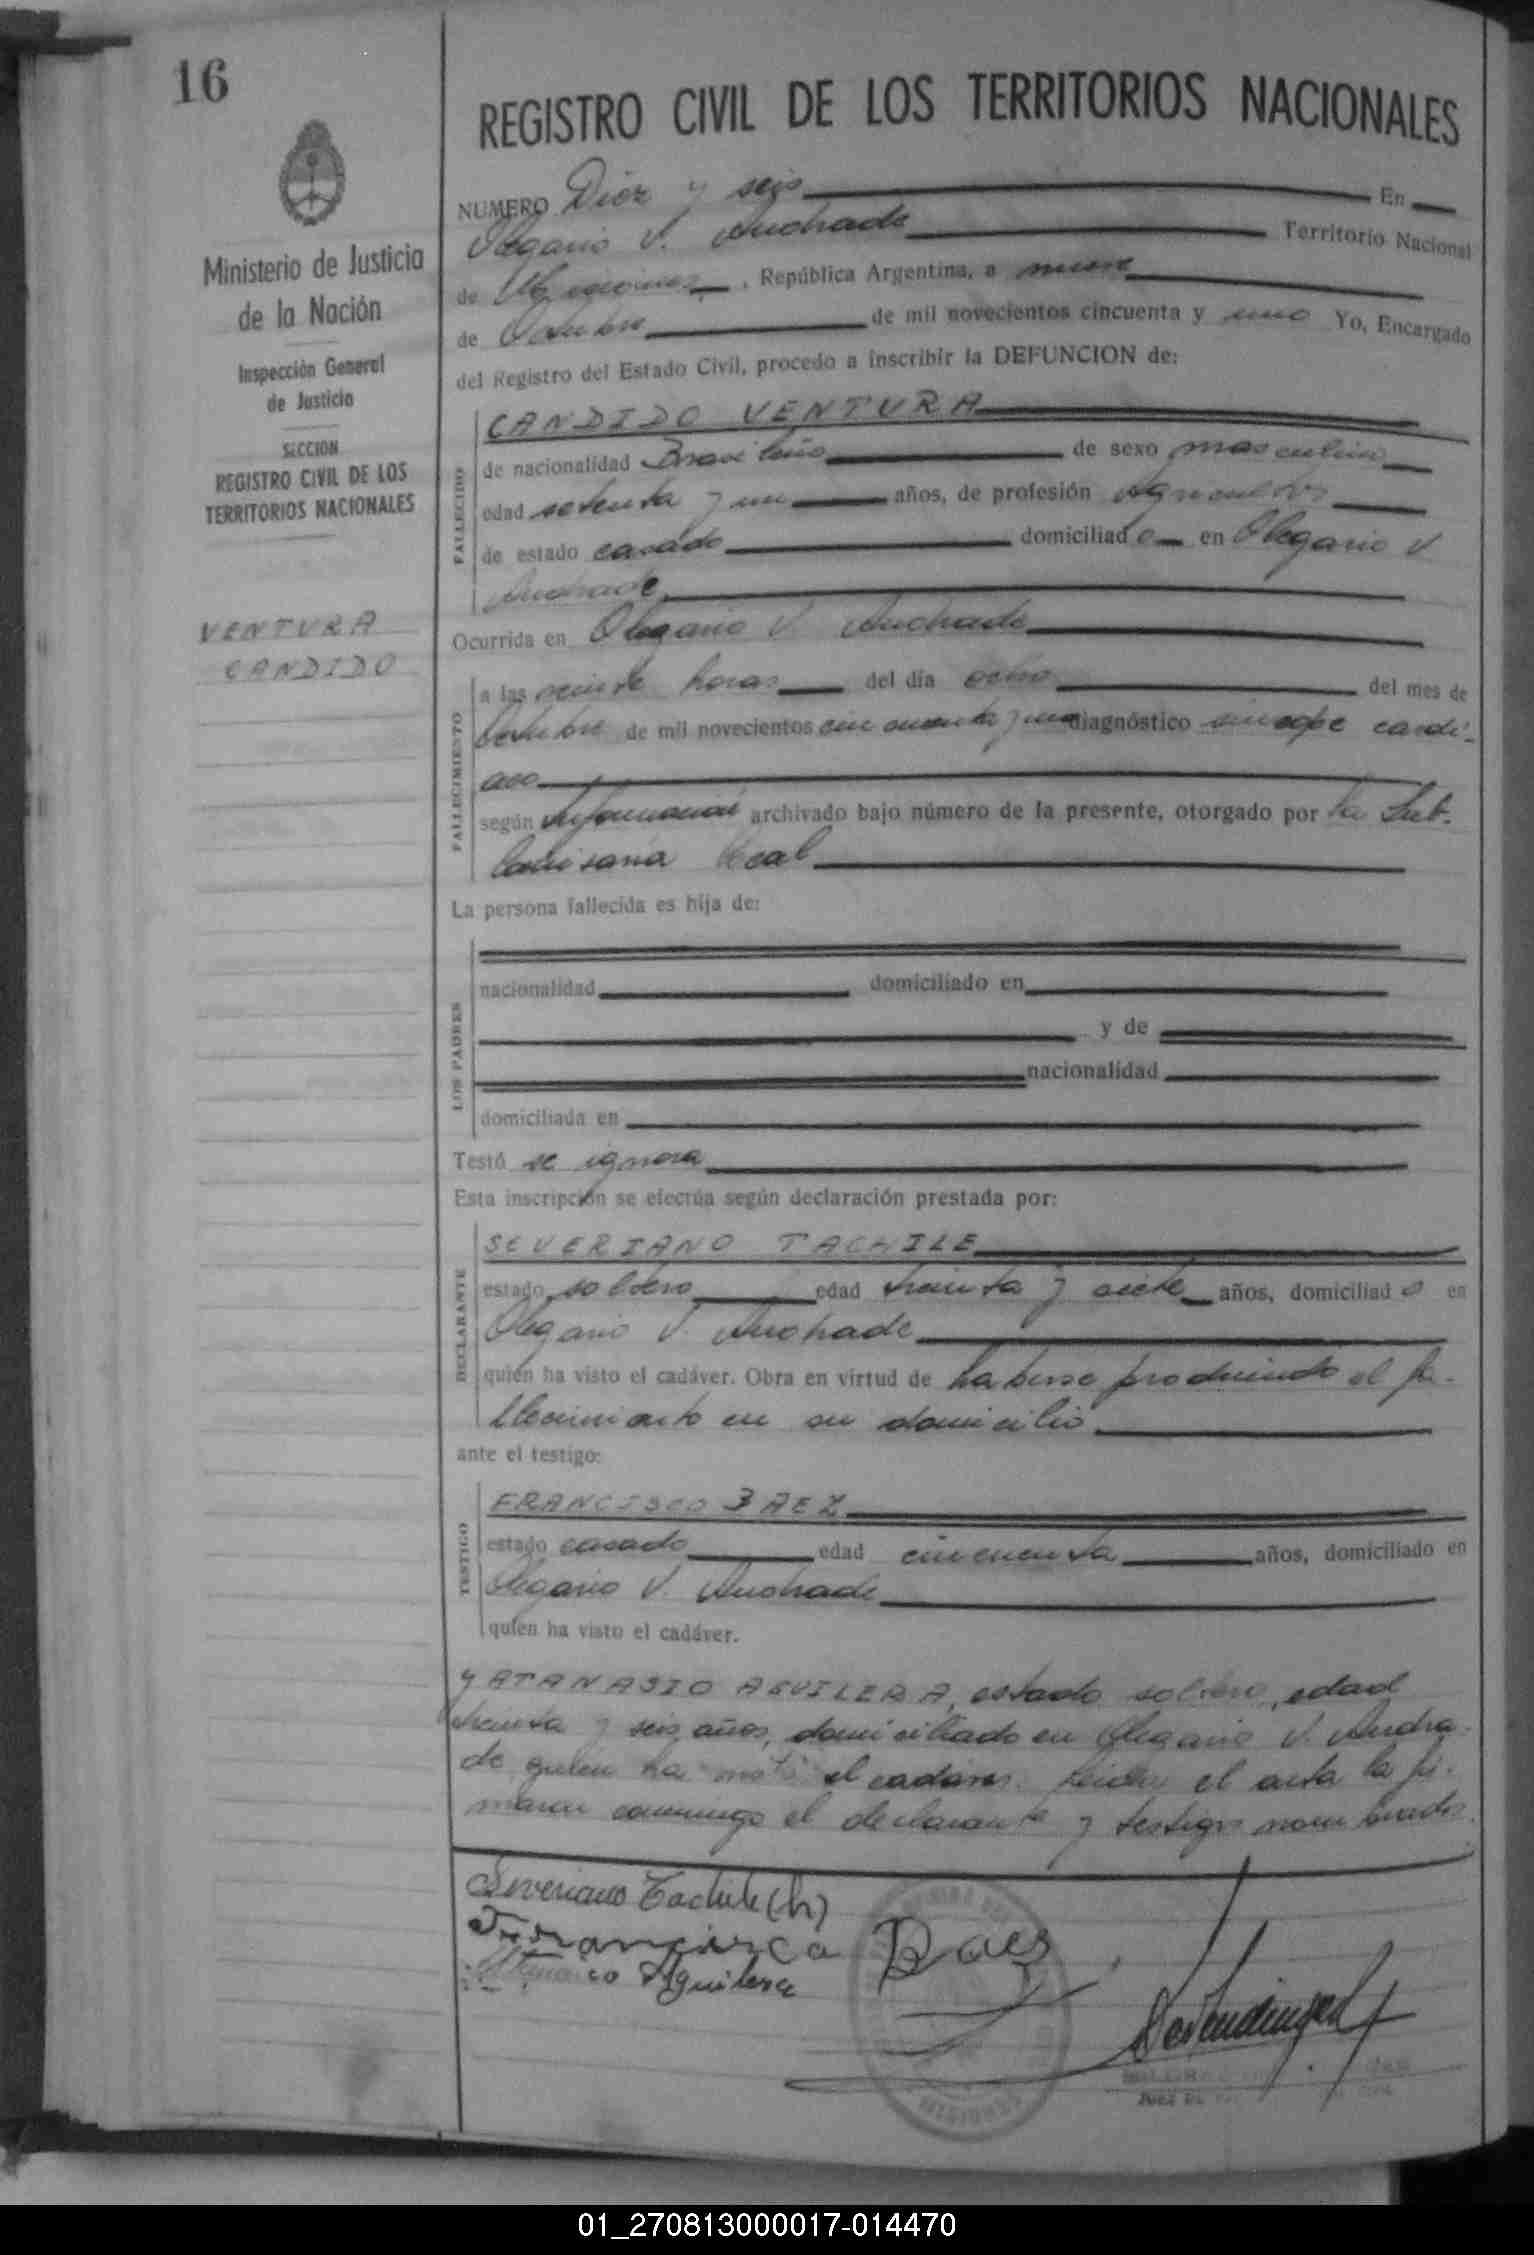 16
REGISTRO CIVIL DE LOS TERRITORIOS NACIONALES
Ministerio de Justicia
de la Nación
Inspección General
de Justicia
SECCION
REGISTRO CIVIL DE LOS
TERRITORIOS NACIONALES
VENTURA
CANDIDO
NUMERO Diez y seis En
Olegario V. Andrade Territorio Nacional
de Misiones, República Argentina, a nueve
de Octubre de mil novecientos cincuenta y uno Yo, Encargado
del Registro del Estado Civil, procedo a inscribir la DEFUNCION de:
CANDIDO VENTURA
FALLECIDO
de nacionalidad Brasileño de sexo masculino
edad setenta y un años, de profesión agricultor
de estado casado domiciliado en Olegario V
Andrade
Ocurrida en Olegario V. Andrade
FALLECIMIENTO
a las horas del día ocho del mes de
Octubre de mil novecientos cincuenta y uno diagnóstico sincope cardi-
aco
según información archivado bajo número de la presente, otorgado por la Sub-
Comisaria local
La persona fallecida es hija de:
LOS PADRES
nacionalidad domiciliado en
y de
nacionalidad
domiciliada en
Testó se ignora
Esta inscripción se efectúa según declaración prestada por:
DECLARANTE
SEVERIANO TACHILE
estado soltero edad treinta y siete años, domiciliado en
Olegario V. Andrade
quien ha visto el cadáver. Obra en virtud de haberse producido el fa-
llecimiento en su domicilio
ante el testigo:
TESTIGO
FRANCISCO BAEZ
estado casado edad cincuenta años, domiciliado en
Olegario V. Andrade
quien ha visto el cadáver.
y ATANASIO AGUILERA, estado soltero, edad
treinta y seis años, domiciliado en Olegario V. Andra-
de quien ha visto el cadáver. Leida el acta la fir-
maron conmigo el declarante y testigos nombrados.
Severiano Tachile (h)
Francisco Baes
Atanacio Aguilera
MISIONES
JUEZ DE
01_270813000017-014470